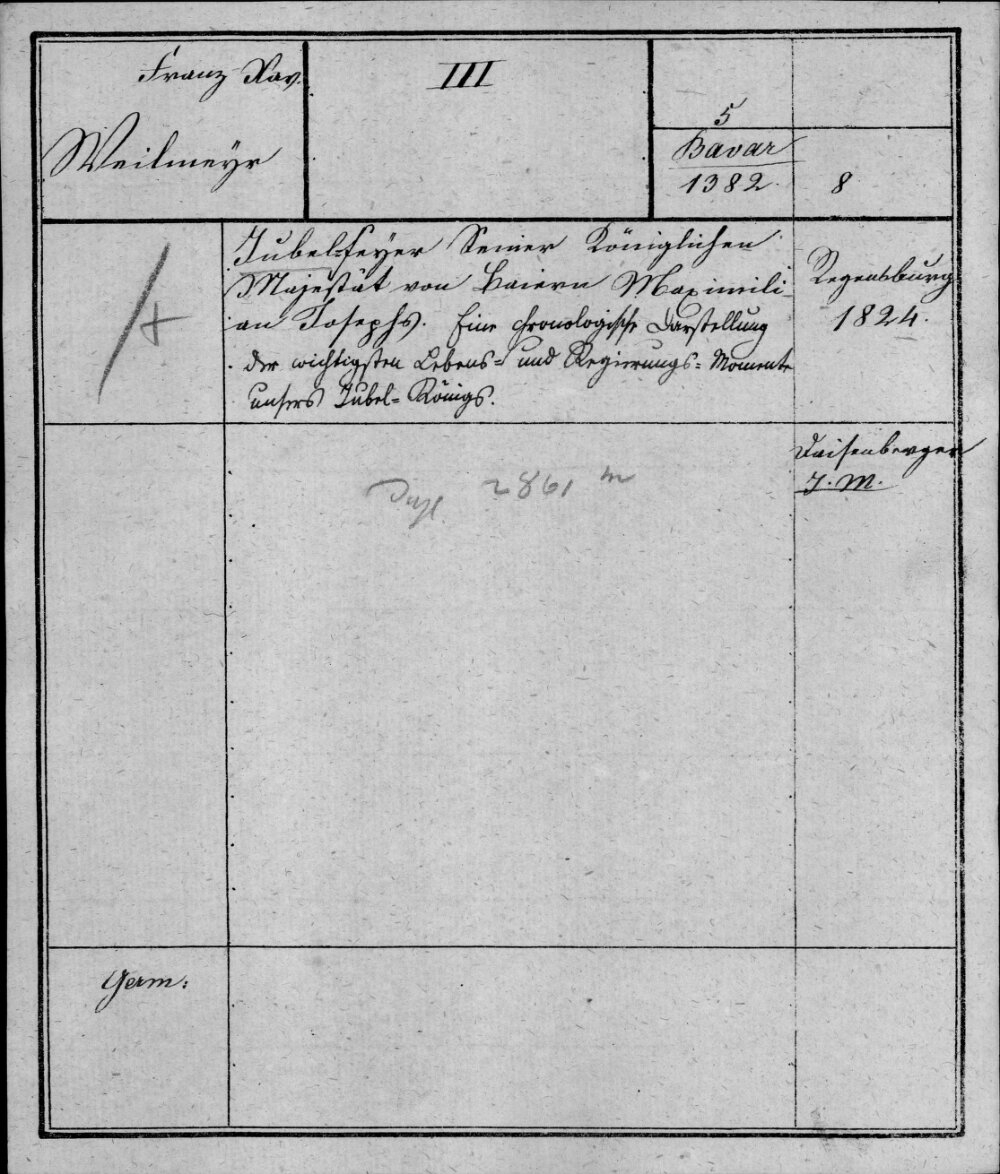 Franz Xav.
Weilmeyr
III
5
Bavar
1382.
8
Jubel-feyer Seiner Königlichen
Majestät von Baiern Maximili-
an Josephs. Eine chronologische Darstellung
der wichtigsten Lebens- und Regierungs-Momente
unsers Jubel-Königs.
Regensburg
1824.
Daisenberger
J. M.
2861
Germ: